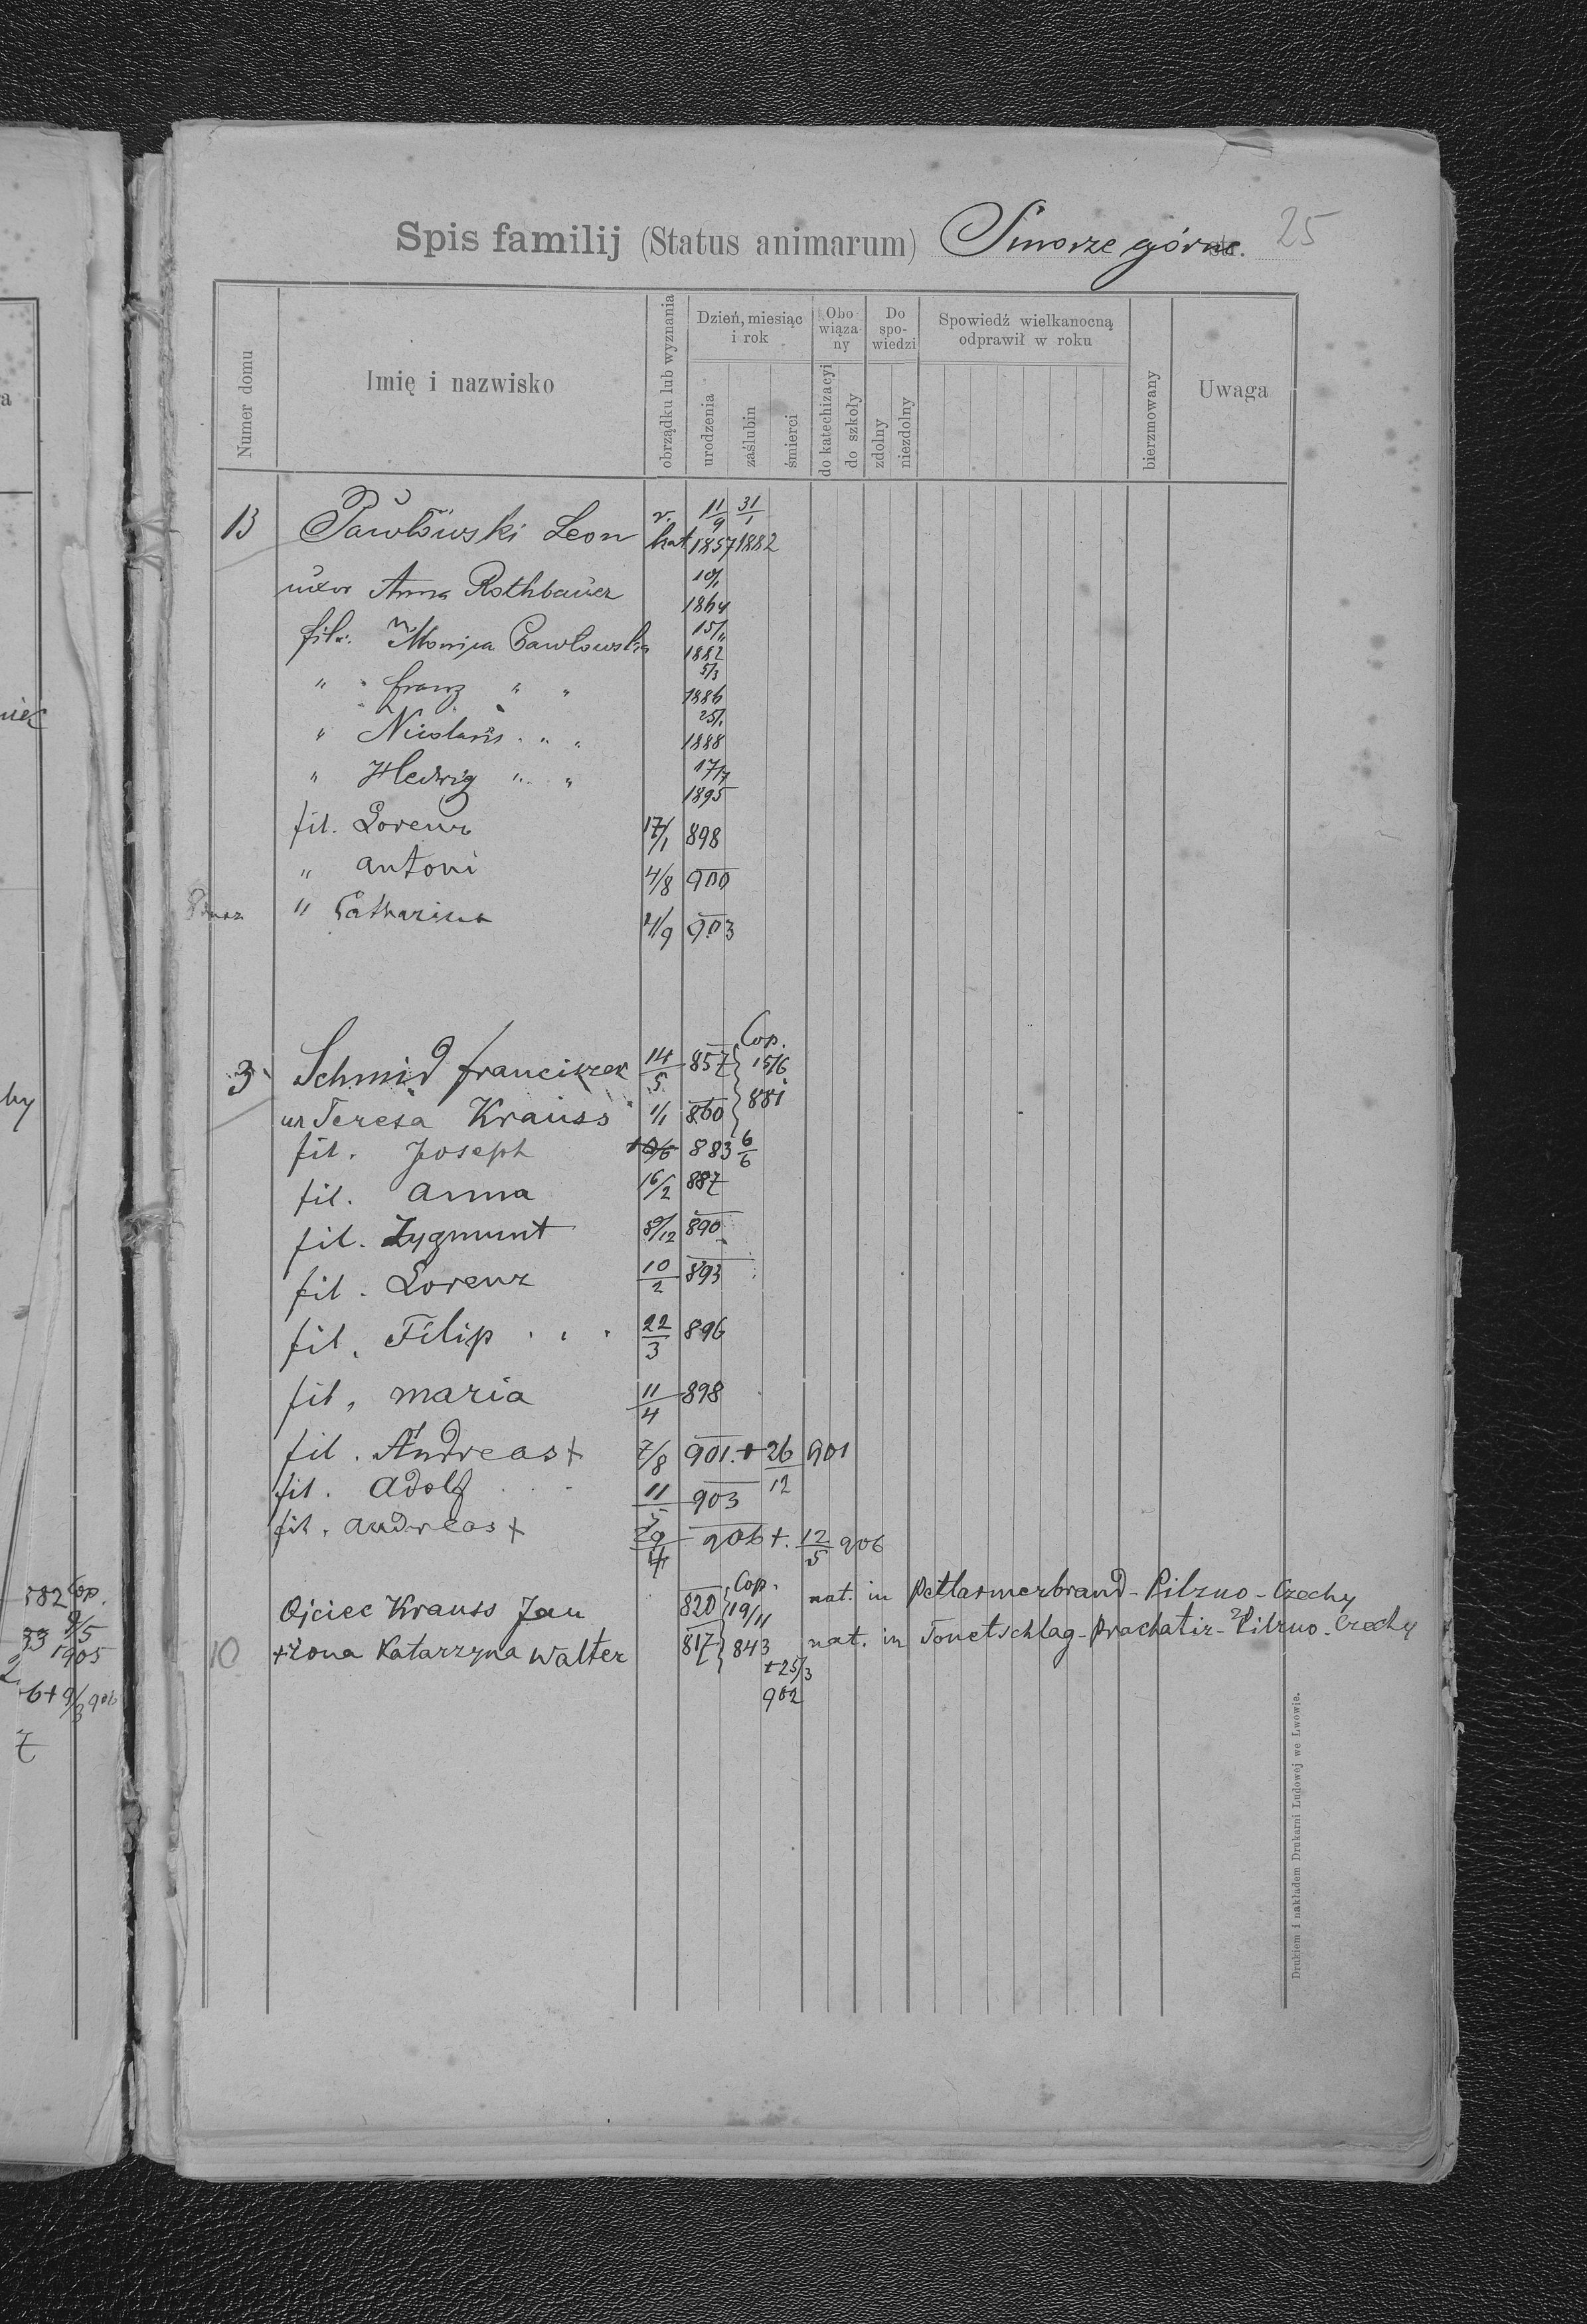 Spis familij (Status animarum) Smorze górne. 25
Numer domu
Imię i nazwisko
obrządku lub wyznania
Dzień, miesiąc i rok
urodzenia
zaślubin
śmierci
Obowiązany
do katechizacyi
do szkoły
Do spowiedzi
zdolny
niezdolny
Spowiedź wielkanocną odprawił w roku
bierzmowany
Uwaga
13 Pawłowski Leon r. kat 11/9 1857 31/1 1882
uxor Anna Rothbauer 10/1 1864
fil. Monica Pawłowska 15/11 1882
" Franz " " 5/3 1886
" Nicolaus " " 25/1 1888
" Hedwig " " 17/7 1895
fil. Lorenz 17/1 898
" Antoni 4/8 900
" Catharina 4/9 903
3 Schmid Franciszek 14/5 857 Cop. 15/6 881
ux Teresa Krauss 1/1 860
fil. Joseph 10/6 883 6/6
fil. Anna 16/2 887
fil. Zygmunt 8/12 890
fil. Lorenz 10/2 893
fil. Filip 22/3 896
fil. Maria 11/4 898
fil. Andreas + 7/8 901. + 26/12 901
fil. Adolf 11/5 903
fil. Andreas + 29/4 906 +. 12/5 906
Ojciec Krauss Jan 820 Cop. 19/11 843 nat. in Petlarmerbrand - Pilzno - Czechy
10 + Żona Katarzyna Walter 817 + 25/3 902 nat. in Tonetschlag - Prachatiz - Pilzno - Czechy
Drukiem i nakładem Drukarni Ludowej we Lwowie.
a
niek
hy
882 Cop.
9/5
83 1905
6 + 9/3 906
7